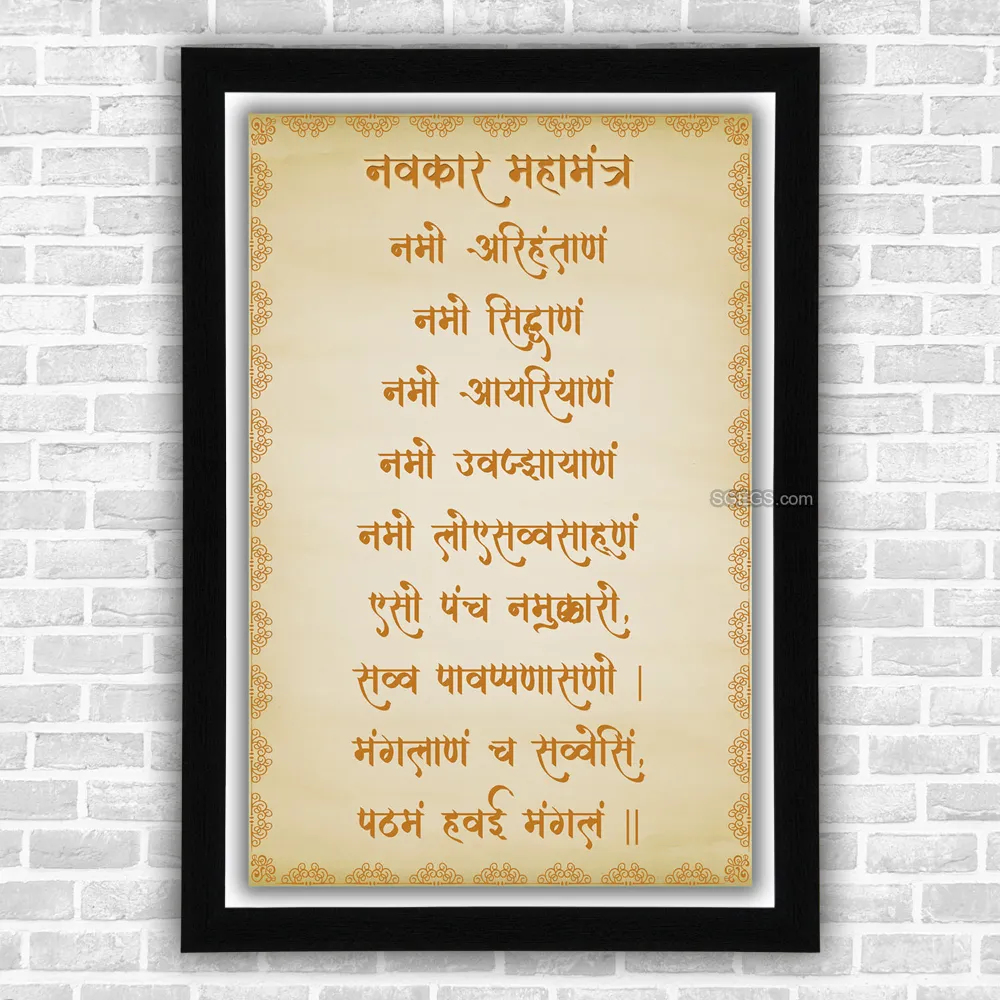 नवकार महामंत्र
नमो अरिहंताणं
नमो सिद्धाणं
नमो आयरियाणं
नमो उवज्झायाणं
नमो लोएसव्वसाहूणं
एसो पंच नमुक्कारो,
सव्व पावप्पणासणो |
मंगलाणं च सव्वेसिं,
पठमं हवई मंगलं ||
SGEGS.com